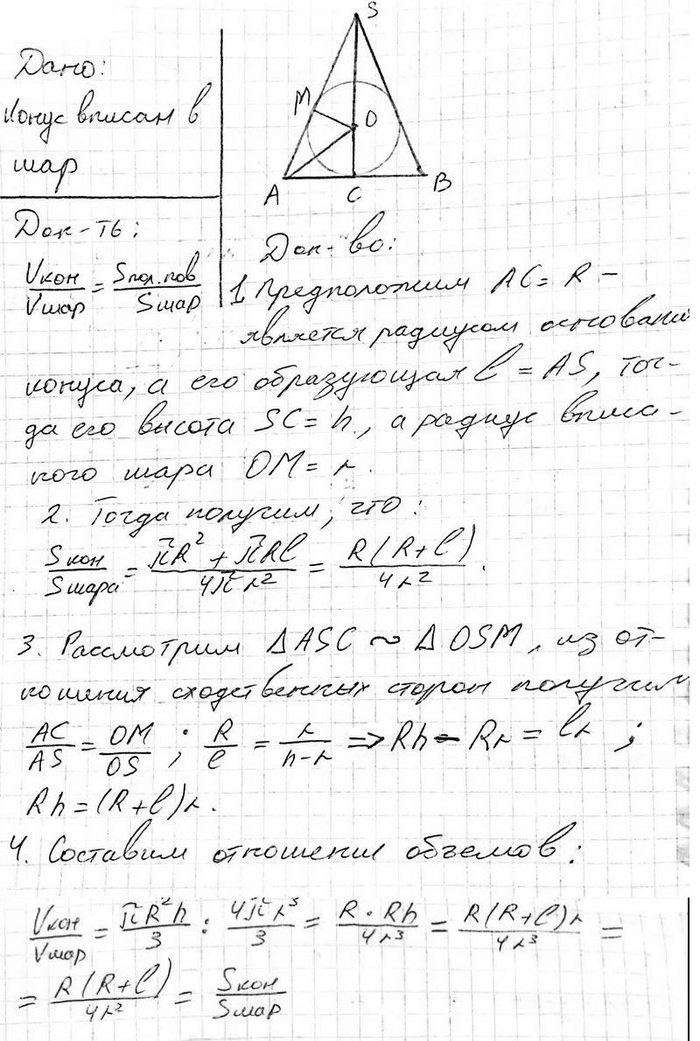 Дано:
Конус вписан в
шар
S
M
O
A
C
B
Док-ть:
Vкон/Vшар = Sпол.пов/Sшар
Док-во:
1 Предположим AC = R –
является радиусом основани
конуса, а его образующая l = AS, тог-
да его высота SC = h, а радиус вписа-
ного шара OM = r.
2. Тогда получим, что:
Sкон/Sшара = πR² + πRl/4πr² = R(R+l)/4r².
3. Рассмотрим △ASC ~ △OSM, из от-
ношения сходственных сторон получим
AC/AS = OM/OS; R/l = r/h-r => Rh - Rr = lr;
Rh = (R+l)r.
4. Составим отношении объемов:
Vкон/Vшар = πR²h/3 : 4πr³/3 = R·Rh/4r³ = R(R+l)r/4r³ =
= R(R+l)/4r² = Sкон/Sшар